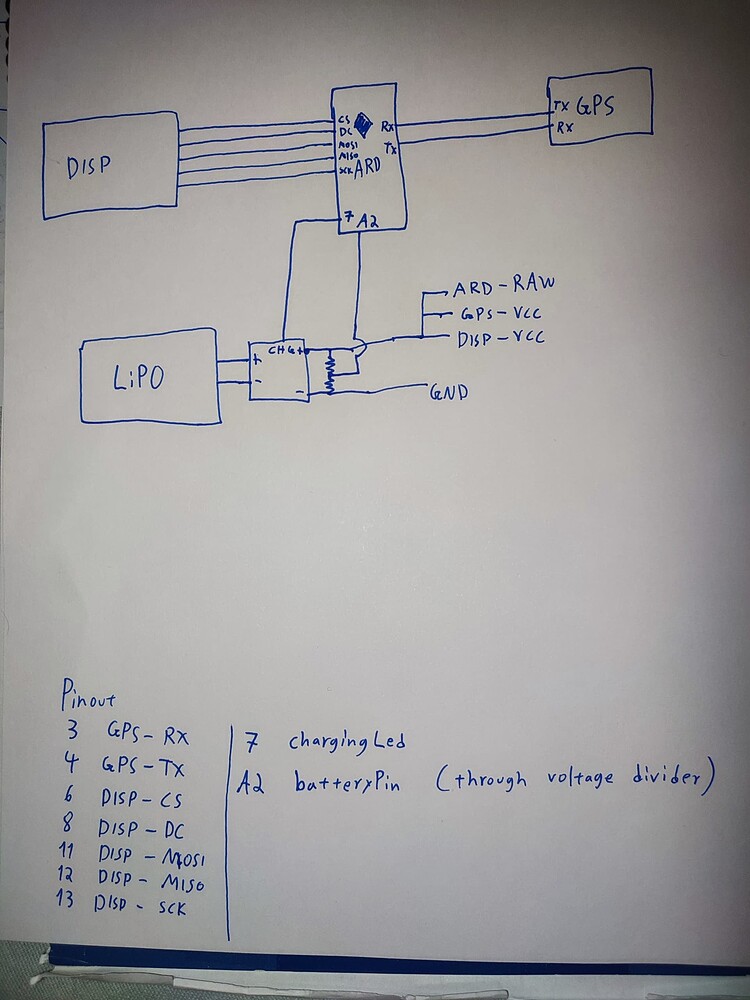 DISP
CS
DC
MOSI
MISO
SCK
ARD
Rx
Tx
7 A2
TX GPS
RX
ARD - RAW
GPS - VCC
DISP - VCC
LiPO
+
-
CHG +
-
GND
Pinout
3 GPS - RX
4 GPS - TX
6 DISP - CS
8 DISP - DC
11 DISP - MOSI
12 DISP - MISO
13 DISP - SCK
7 chargingLed
A2 batteryPin (through voltage divider)